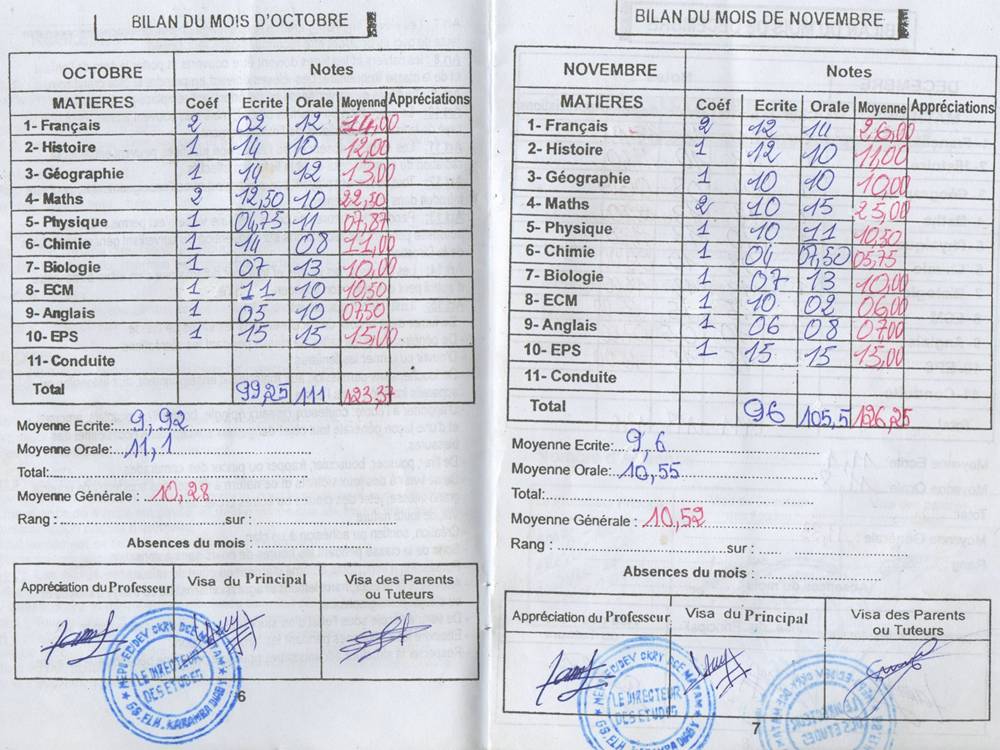 BILAN DU MOIS D'OCTOBRE
OCTOBRE Notes
MATIERES Coéf Ecrite Orale Moyenne Appréciations
1- Français 2 02 12 14,00
2- Histoire 1 14 10 12,00
3- Géographie 1 14 12 13,00
4- Maths 2 12,50 10 22,50
5- Physique 1 04,75 11 07,87
6- Chimie 1 14 08 11,00
7- Biologie 1 07 13 10,00
8- ECM 1 11 10 10,50
9- Anglais 1 05 10 07,50
10- EPS 1 15 15 15,00
11- Conduite
Total 99,25 111 123,37
Moyenne Ecrite: 9,92
Moyenne Orale: 11,1
Total:
Moyenne Générale : 10,28
Rang : sur :
Absences du mois :
Appréciation du Professeur Visa du Principal Visa des Parents
ou Tuteurs
LE DIRECTEUR
DES ETUDES
6
BILAN DU MOIS DE NOVEMBRE
NOVEMBRE Notes
MATIERES Coéf Ecrite Orale Moyenne Appréciations
1- Français 2 12 14 26,00
2- Histoire 1 12 10 11,00
3- Géographie 1 10 10 10,00
4- Maths 2 10 15 25,00
5- Physique 1 10 11 10,50
6- Chimie 1 04 07,50 05,75
7- Biologie 1 07 13 10,00
8- ECM 1 10 02 06,00
9- Anglais 1 06 08 07,00
10- EPS 1 15 15 15,00
11- Conduite
Total 96 105,5 126,25
Moyenne Ecrite: 9,6
Moyenne Orale: 10,55
Total:
Moyenne Générale : 10,52
Rang : sur :
Absences du mois :
Appréciation du Professeur Visa du Principal Visa des Parents
ou Tuteurs
LE DIRECTEUR
DES ETUDES
7